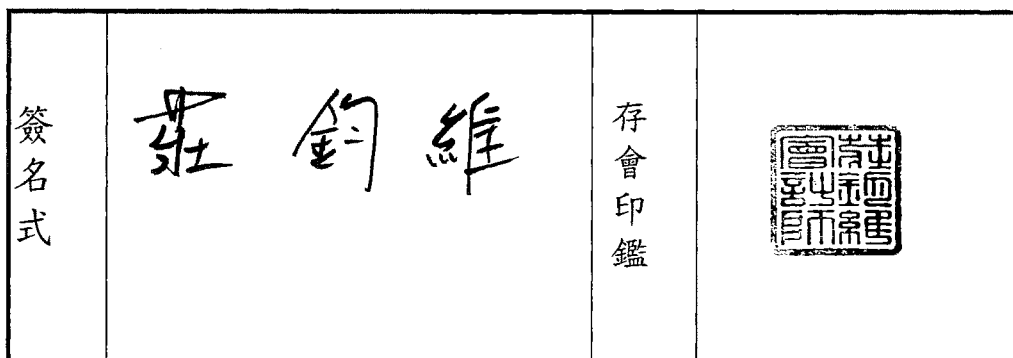 簽名式
莊鈞維
存會印鑑
莊鈞維會計師